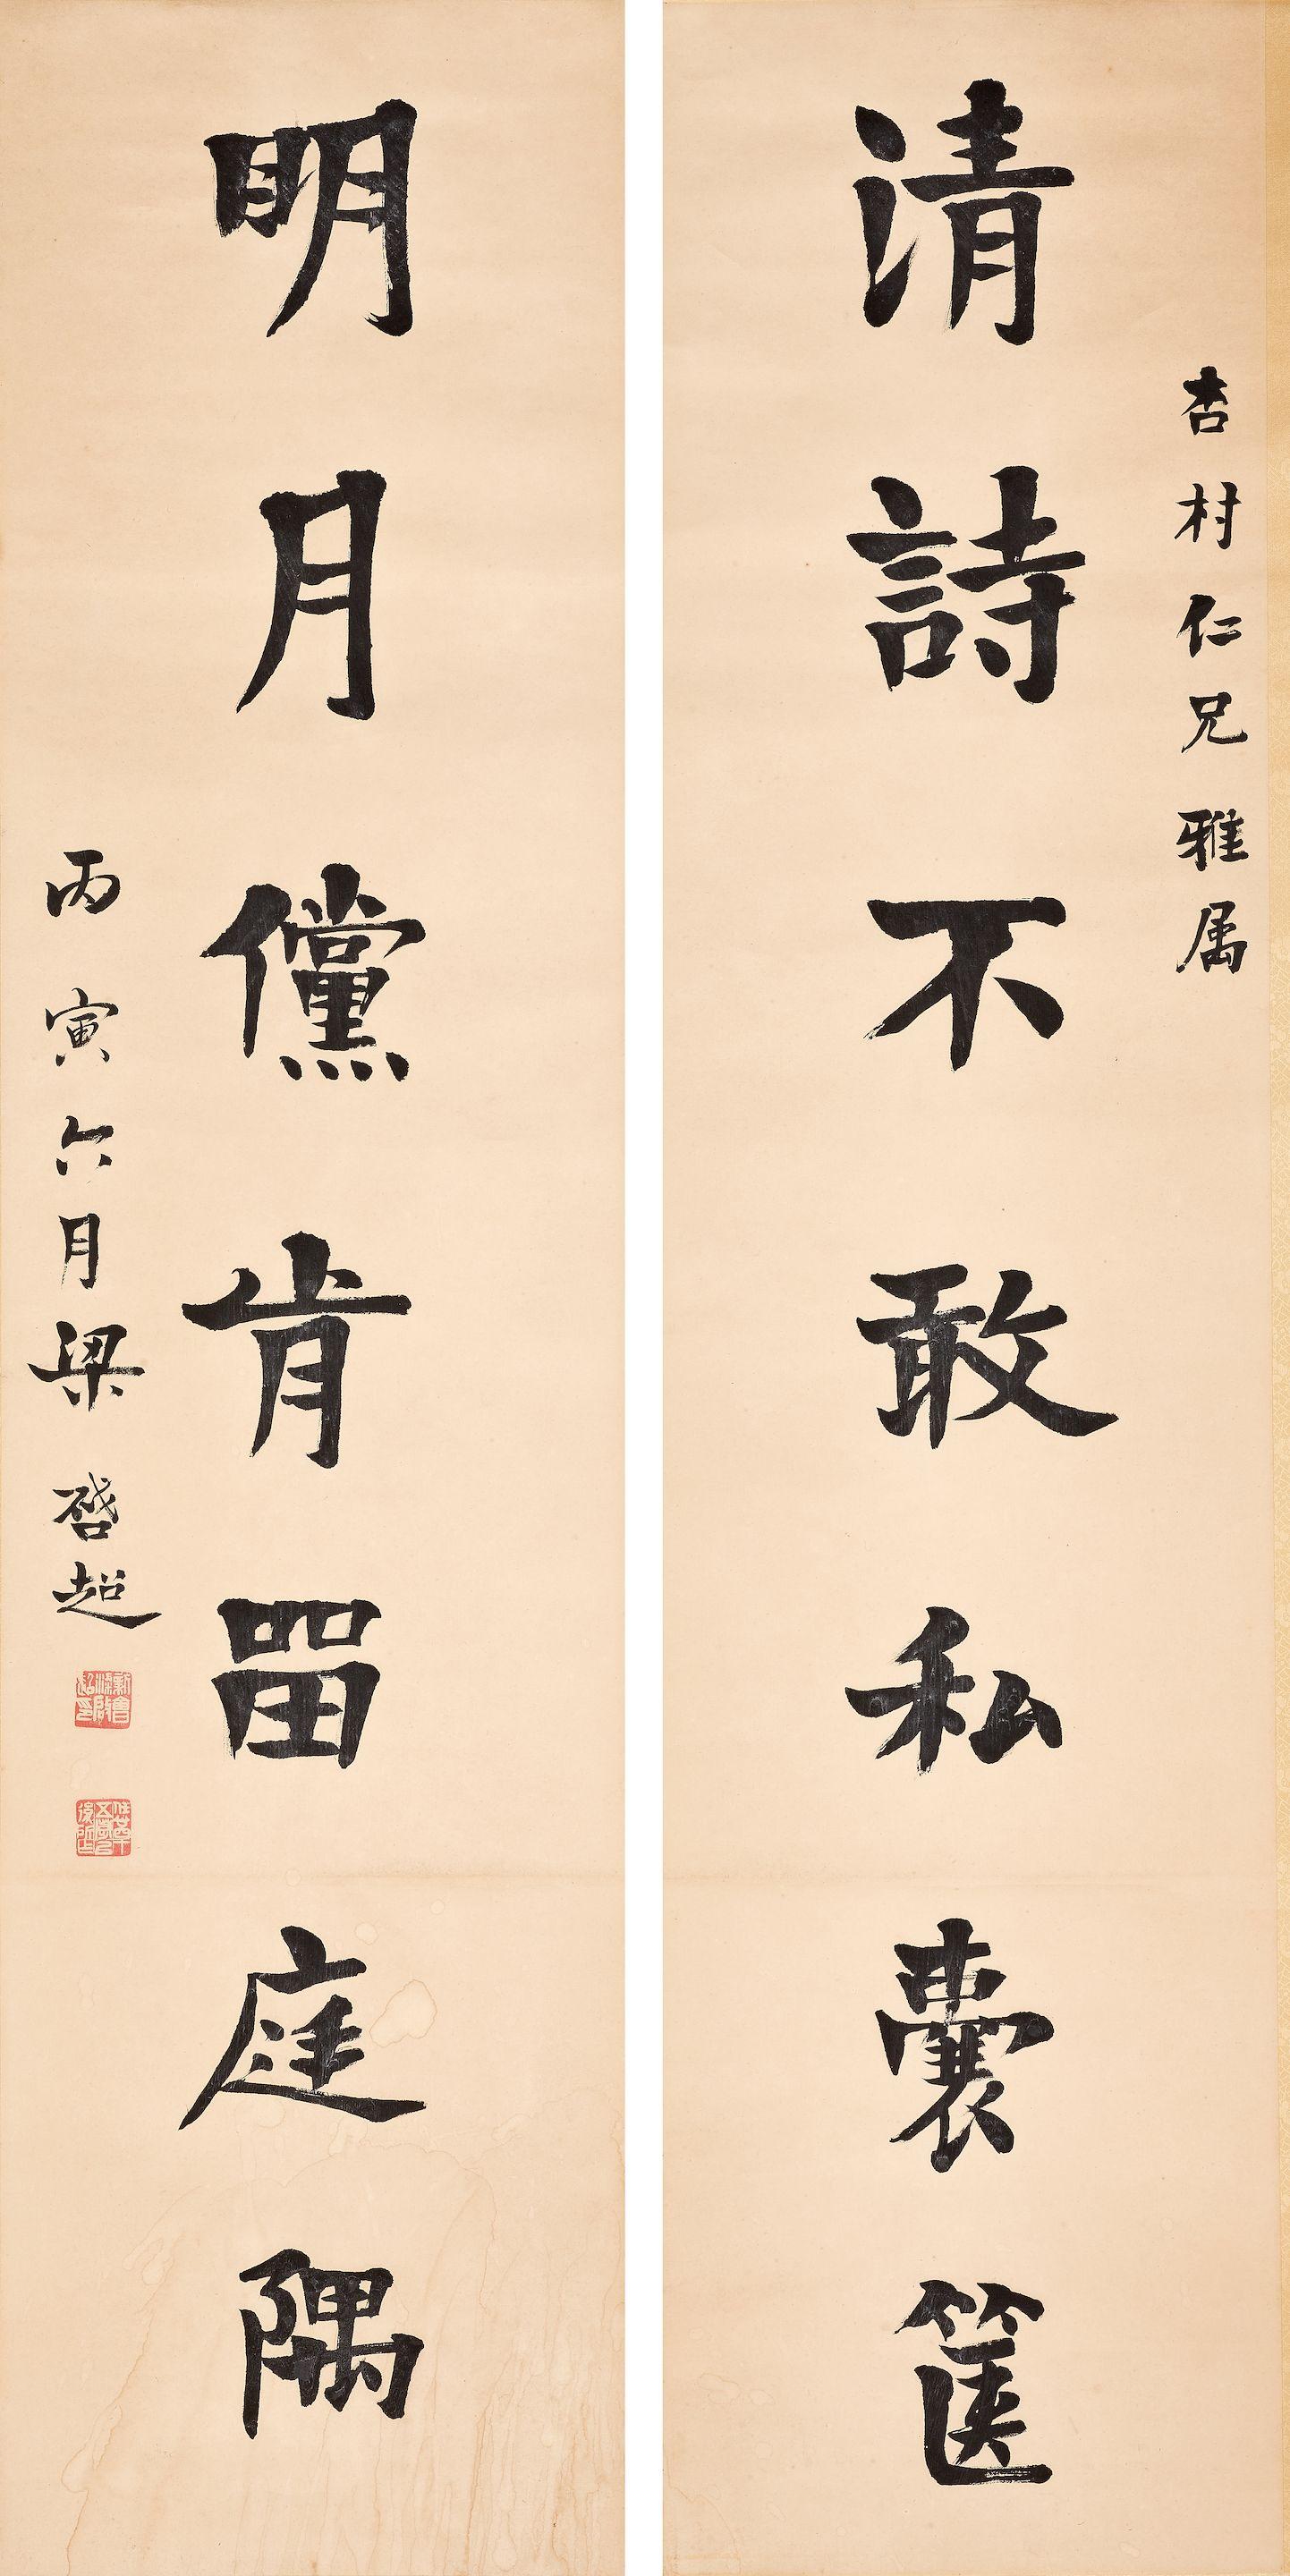 杏村仁兄雅属
清詩不敢私囊箧
明月儻肯畱庭隅
丙寅六月梁啓超
新會梁啟超印